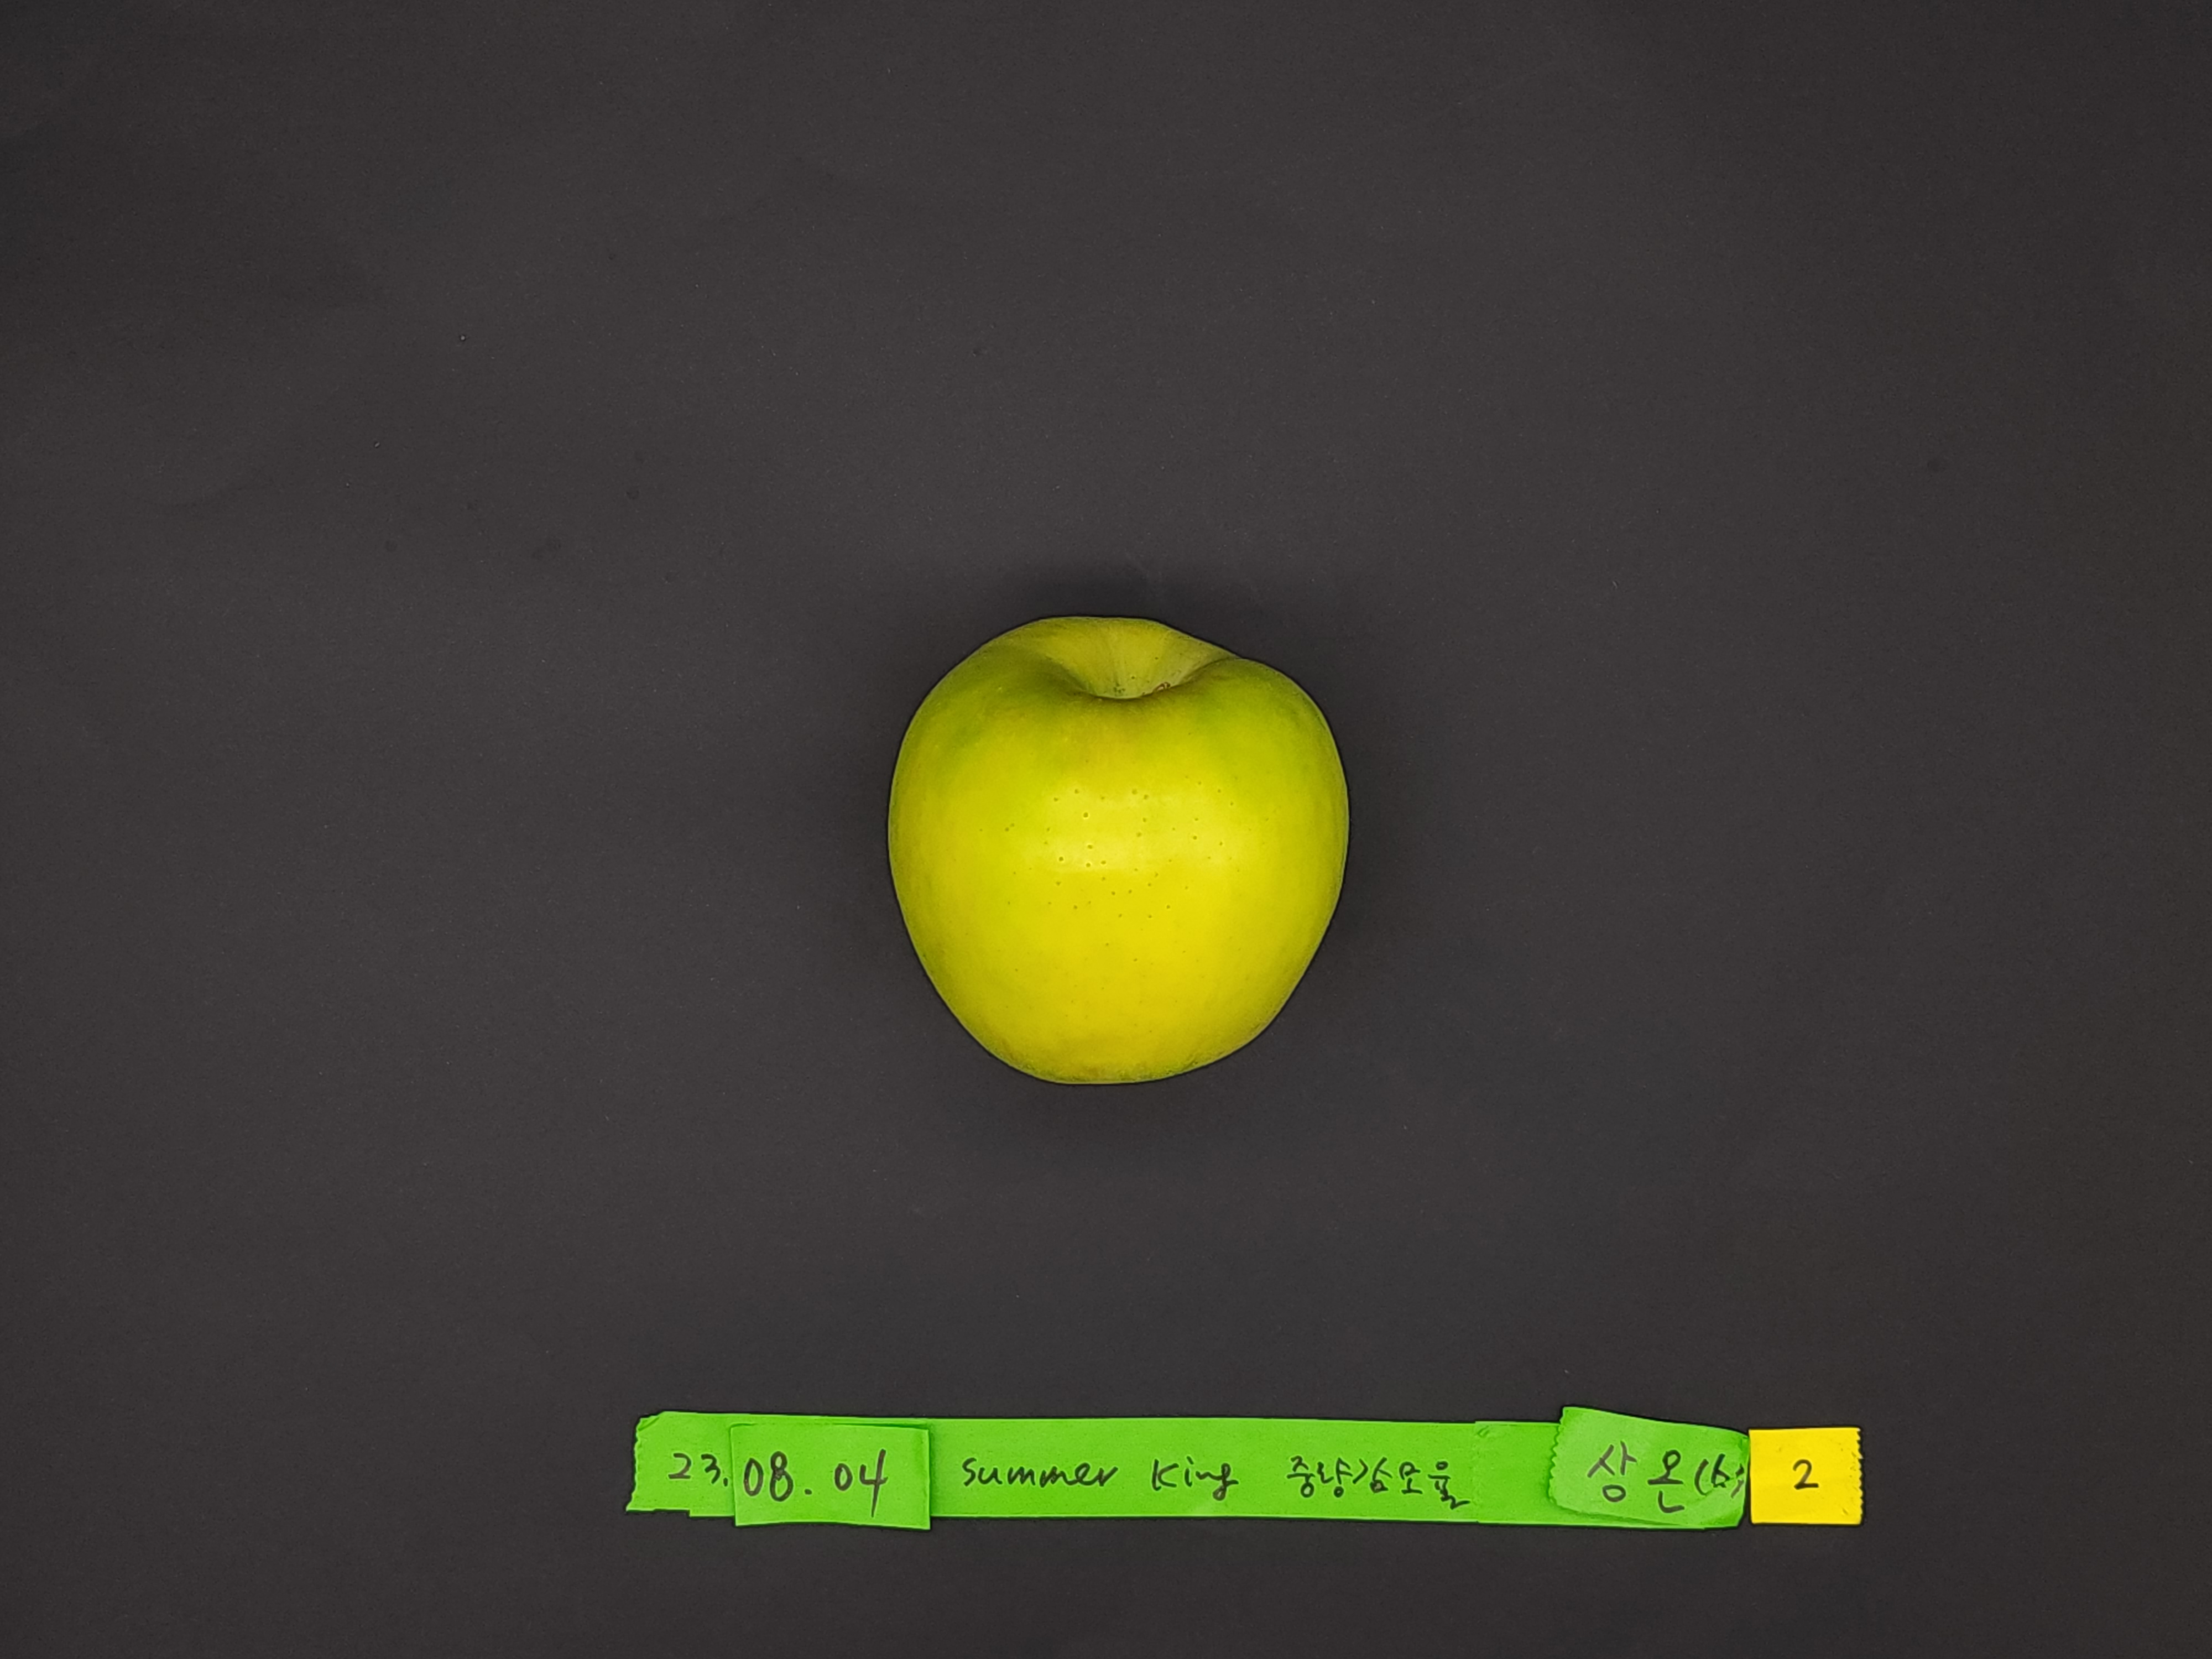 23.08.04 Summer King 중량감모율 상온 2